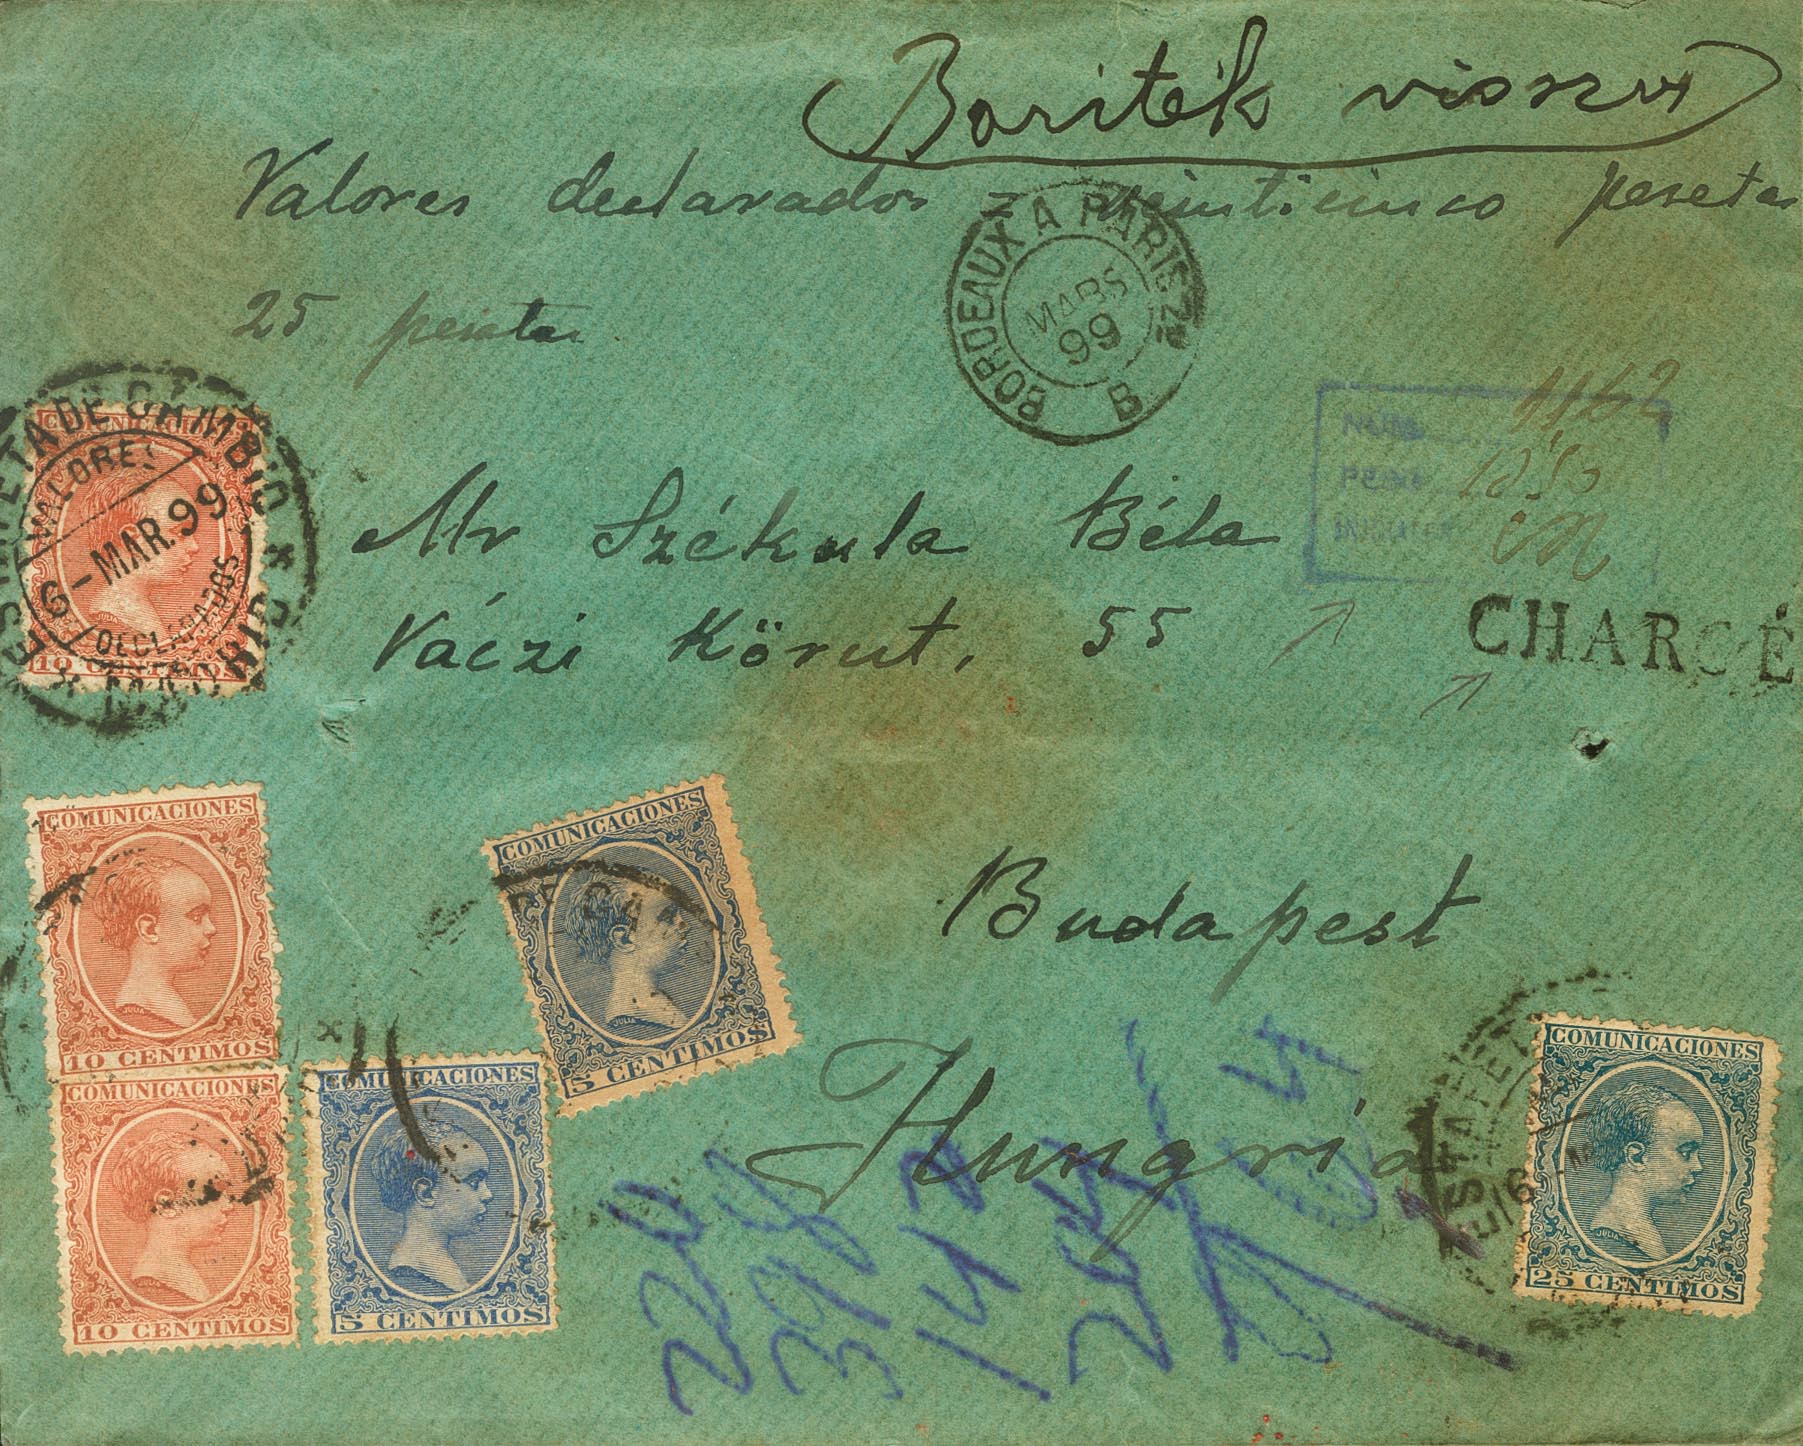 Boríték vissza
Valores declarados = veinticinco pesetas
25 pesetas
BORDEAUX A PARIS 2°
MARS
99
B
NÚM. 1162
PESO
CHARGÉ
ESTAFETA DE CAMBIO
VALORES
6-MAR.99
DECLARADOS
COMUNICACIONES
JULIA
10 CENTIMOS
Mr Székula Béla
Váczi Körut, 55
Budapest
Hungria
COMUNICACIONES
JULIA
10 CENTIMOS
COMUNICACIONES
JULIA
5 CENTIMOS
DE CAM
COMUNICACIONES
10 CENTIMOS
COMUNICACIONES
5 CENTIMOS
COMUNICACIONES
JULIA
25 CENTIMOS
ESTAFET